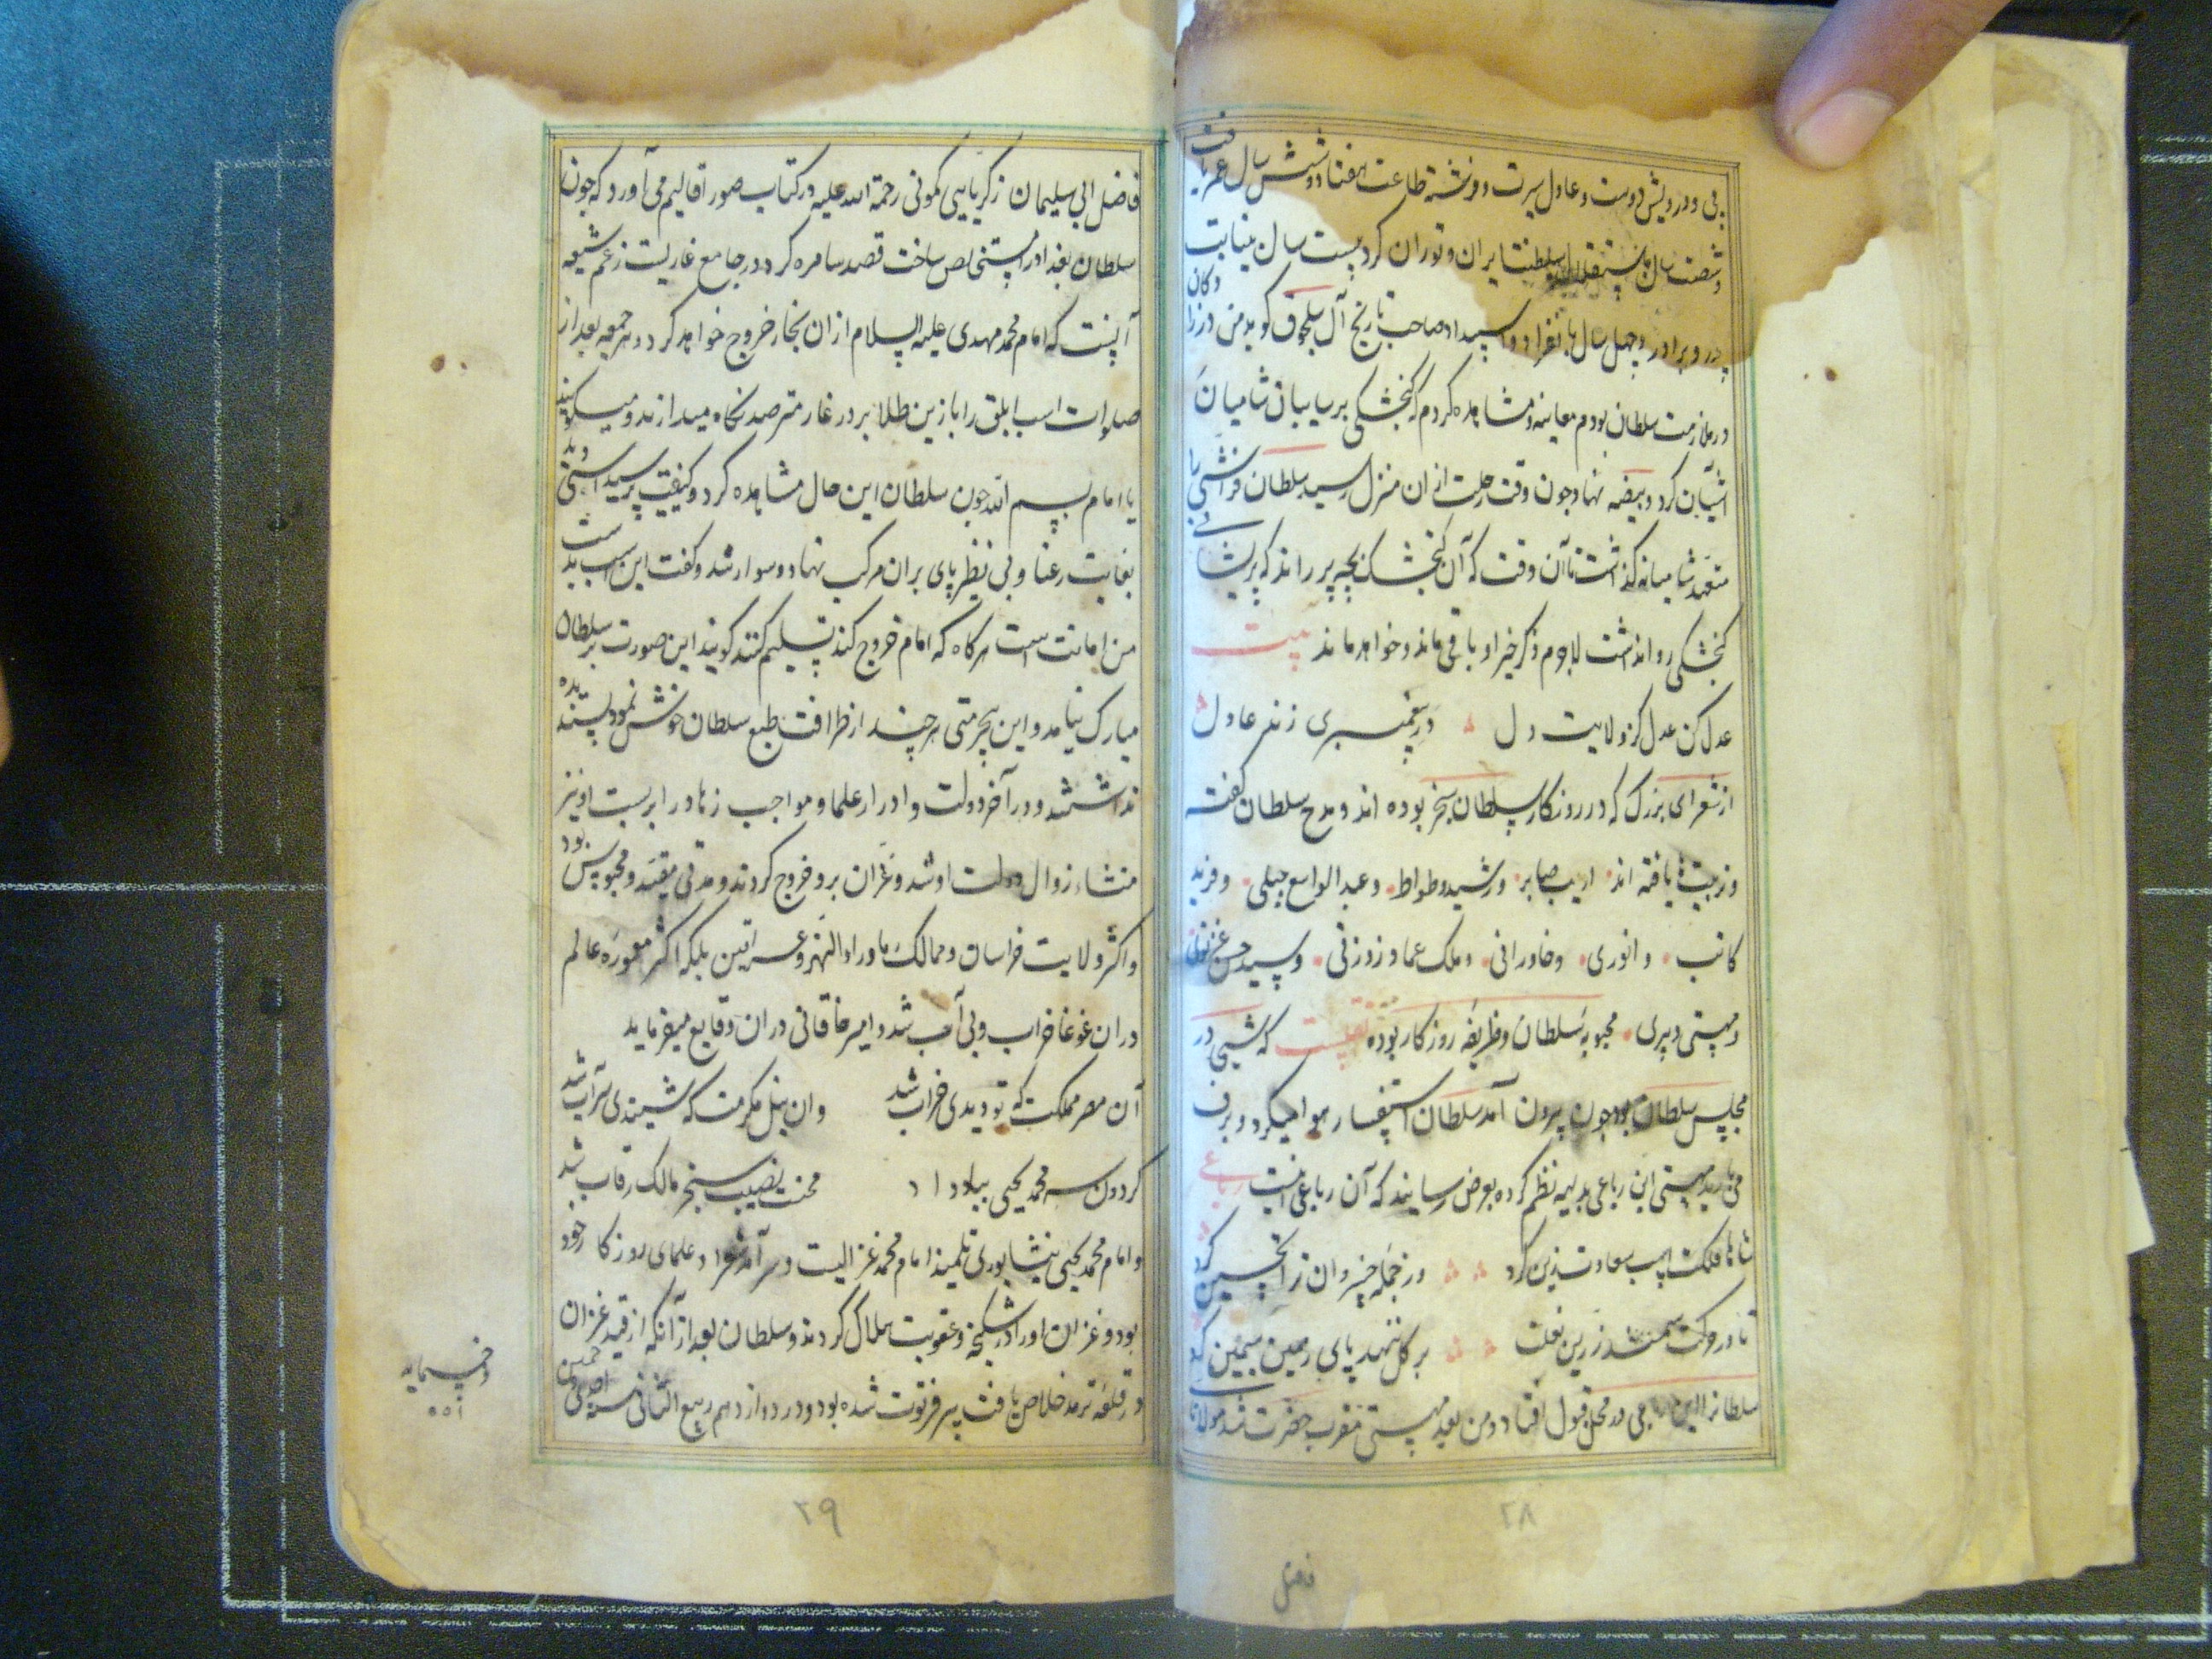 بی و درویش دوست و عادل سیرت و فرشته طاعت هفتاد و شش سال عمر یافت
و شصت سال باستقلال سلطنت ایران و توران کرد بیست سال بنیابت
پدر و برادر و چهل سال بانفراد و استبداد صاحب تاریخ آل سلجوق کوید من در زادکان
در ملازمت سلطان بودم معاینه و مشاهده کردم که کنجشکی بر سایبان شامیان
آشیان کرد و بیضه نهاد چون وقت رحلت از آن منزل رسید سلطان فراشی را
متعهد شامیانه کذاشت تا آن وقت که آن کنجشک بچه پر راند که پریشانی
کنجشکی روا نداشت لاجرم ذکر خیر او باقی ماند و خواهد ماند بیت
عدل کن عدل کز ولایت دل در پیغمبری زند عادل
از شعرای بزرک که در روزکار سلطان سنجر بوده اند و مدح سلطان کفته
و تربیت یافته اند ادیب صابر و رشید وطواط و عبد الواسع جبلی و فرید
کاتب و انوری و خاورانی و ملک عماد زوزنی و سید حسن غزنوی
و مهستی دبیری محبوبه سلطان و ظریفه روزکار بوده نقلست که شبی در
مجلس سلطان بود چون بیرون آمد سلطان استفسار هوا میکرد و برف
می بارید مهستی این رباعی بدیهه نظم کرده بعرض رسانید که آن رباعی اینست رباعی
شاها فلکت اسب سعادت زین کرد وز جمله خسروان ترا تحسین کرد
تا در حرکت سمند زرین نعلت بر کل ننهد پای زمین سیمین کرد
سلطانرا این رباعی در محل قبول افتاد و من بعد مهستی مقرب حضرت شد مولانا
۲۸
فاضل
فاضل ابی سلیمان زکریایی کوفی رحمة الله علیه در کتاب صور اقالیم می آورد که چون
سلطان بغداد را مستخلص ساخت قصد سامره کرد در جامع غاریست زعم شیعه
آنست که امام محمد مهدی علیه السلام از ان بخار خروج خواهد کرد و هر جمعه بعد از
صلوات اسب ابلق را با زین طلا بر در غار مترصد نکاه میدارند و میکویند
یا امام بسم الله چون سلطان این حال مشاهده کرد و کیفیت پرسید اسبی دید
بغایت رعنا و بی نظیر پای بران مرکب نهاد و سوار شد و کفت این اسب بدست
من امانت است هرکاه که امام خروج کند تسلیم کنند کویند این صورت بر سلطان
مبارک نیامد و این بیحرمتی هر چند از ظرافت طبع سلطان خوش نمود پسندیده
نداشتند و در آخر دولت و ادرار علما و مواجب زهاد را بر بست او نیز
منشاء زوال دولت او شد و غزان برو خروج کردند و مدتی مقید و محبوس بود
و اکثر ولایت خراسان و ممالک ماوراء النهر و عراقین بلکه اکثر معموره عالم
در ان غوغا خراب و بی آب شد و امیر خاقانی در ان وقایع میفرماید
آن مصر مملکت که تو دیدی خراب شد وان نیل مکرمت که شنیدی سراب شد
کردون سر محمد یحیی بباد داد محنت نصیب سنجر مالک رقاب شد
و امام محمد یحیی نیشابوری تلمیذ امام محمد غزالیست و سر آمد شعرا و علمای روزکار خود
بود و غزان او را در شکنجه و عقوبت هلاک کردند و سلطان بعد از آنکه از قید غزان
در قلعه ترمد خلاص یافت پیر فرتوت شده بود و در دوازدهم ربیع الثانی سنه احدی خمسین
و خمسمایه
۵۵۱
۲۹